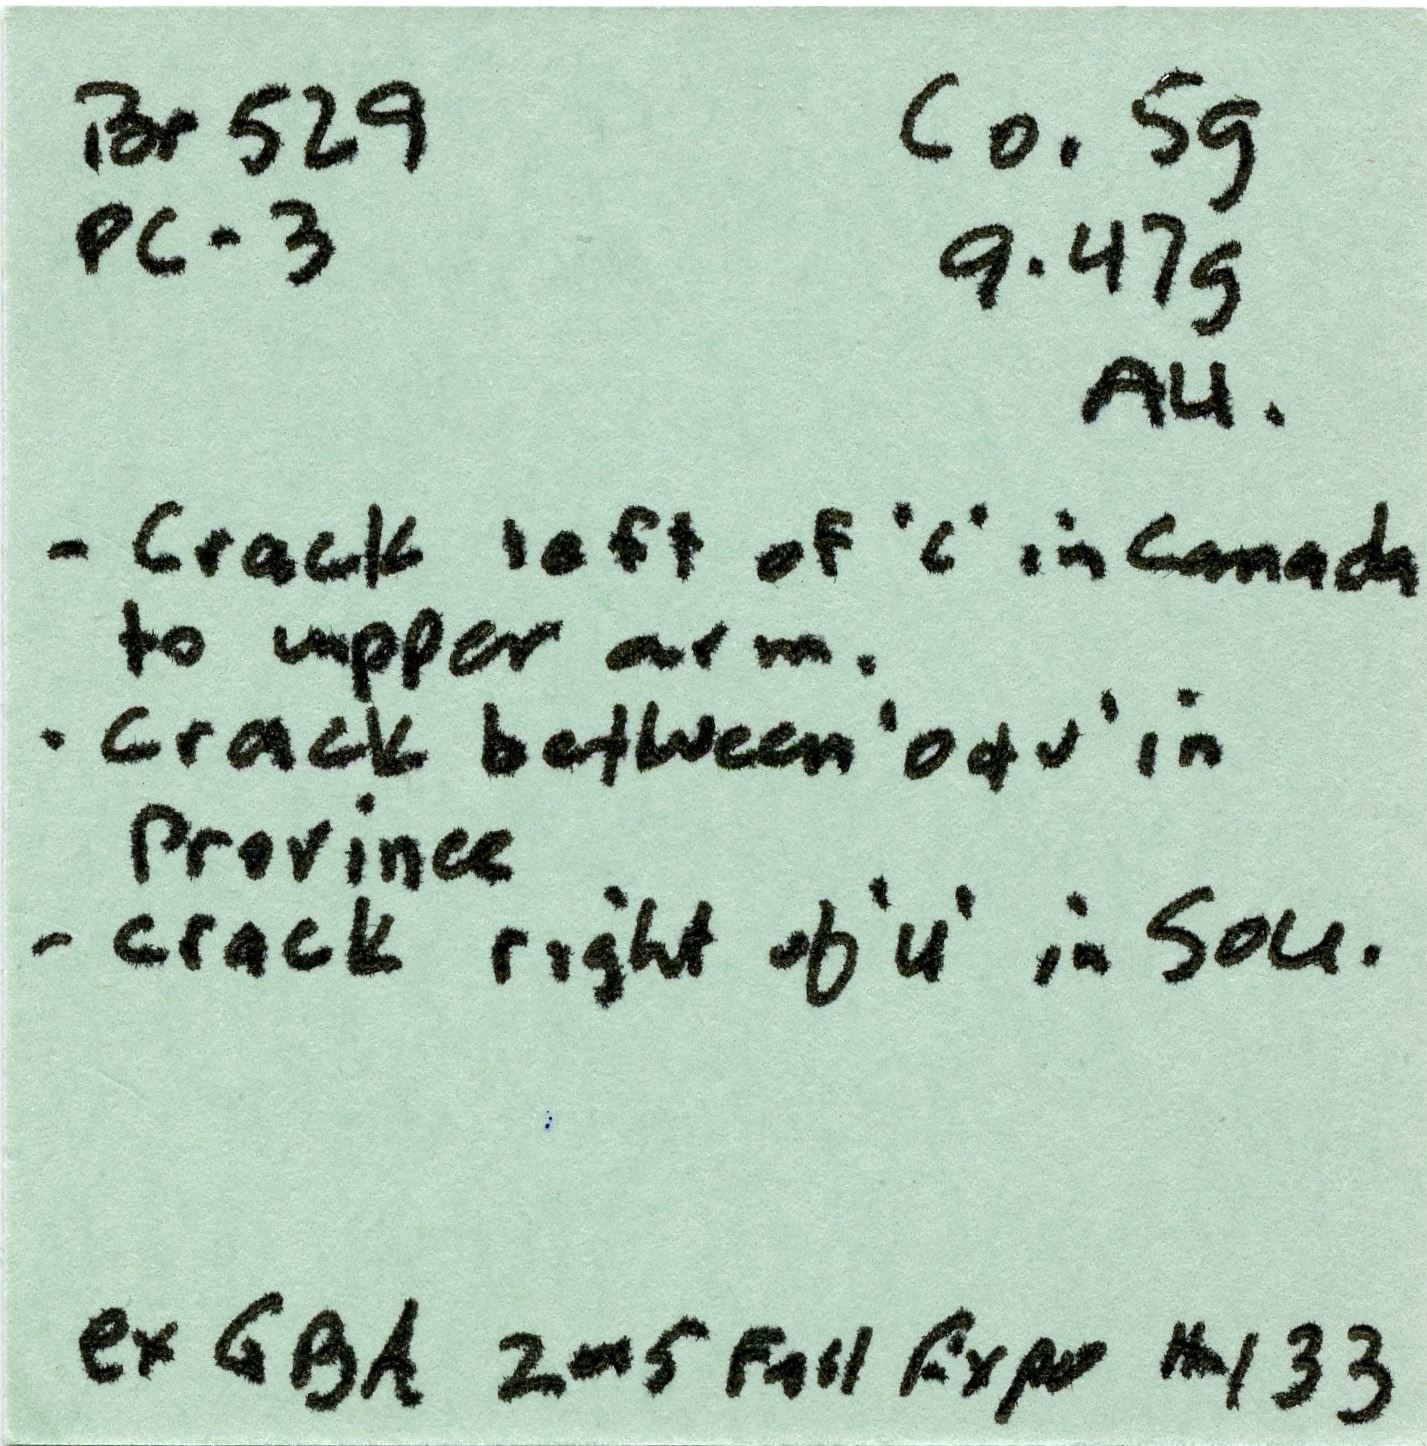 Br 529 Co. 5g
PC-3 9.47g
AU.
- Crack left of 'C' in Canada
to upper arm.
- Crack between 'o & v' in
Province
- crack right of 'u' in Sou.
ex GBA 2005 Fall Expo #133